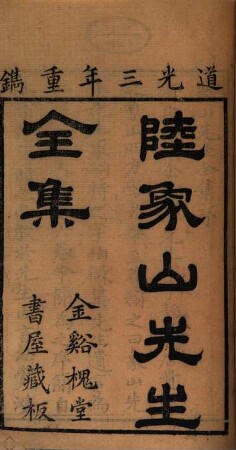 道光三年重鐫
陸象山先生
全集
金谿槐堂
書屋藏板